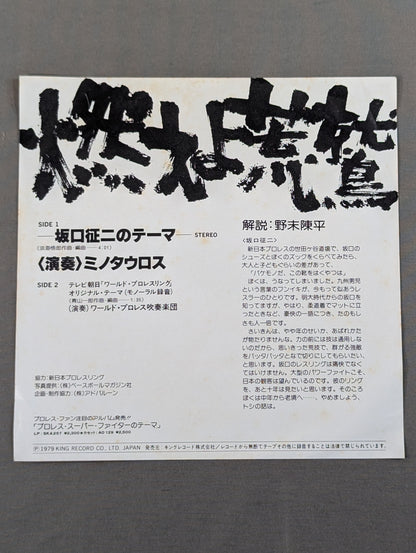 燃えよ荒鷲
SIDE 1
坂口征二のテーマ STEREO
〈演奏〉ミノタウロス
SIDE 2 テレビ朝日「ワールド・プロレスリング」
オリジナル・テーマ(モノーラル録音)
(青山一郎作曲・編曲 1.35)
(演奏)ワールド・プロレス吹奏楽団
協力:新日本プロレスリング
写真提供:(株)ベースボールマガジン社
企画・制作協力:(株)アドバルーン
プロレス・ファン注目のアルバム発売!!
「プロレス・スーパー・ファイターのテーマ」
解説:野末陳平
〈坂口征二〉
新日本プロレスの世田ヶ谷道場で、坂口の
シューズとぼくのズックをくらべてみたら、
大人と子どもぐらいの差があって、
「バケモノだ、この靴をはくやつは」
ぼくは、うなってしまいました。九州男児
という言葉のフンイキが、今もって似あうレ
スラーのひとりです。明大時代からの坂口を
知ってますが、やはり、柔道着でマットに立
ったときなど、豪快の一語につき、たのもし
さも人一倍です。
さいきんは、やや年のせいか、あばれかた
が物たりませんな。力の前には技は通用しな
いのだから、思いきった荒技で、群がる強敵
をバッタバッタとなで切りにしてもらいたい、
と思います。坂口のレスリングは痛快でなく
てはいけません。大型のパワーファイトこそ
日本の観客は望んでいるのです。彼のリング
を、あと十年は見たいと思います。そのころ
ぼくは中年から老境へ――、やめましょう、
トシの話は。
Ⓟ1979 KING RECORD CO., LTD. JAPAN 発売元:キングレコード株式会社/レコードから無断でテープその他に録音することは法律で禁じられています。